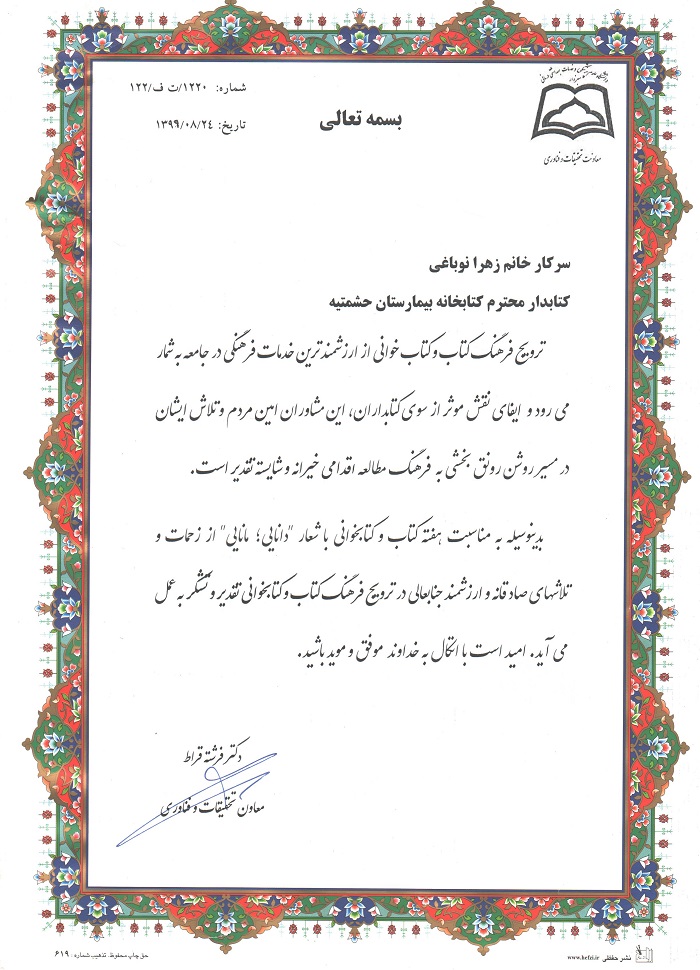 شماره: ۱۲۲۰/ت ف/۱۲۲
تاریخ: ۱۳۹۹/۰۸/۲۴
بسمه تعالی
معاونت تحقیقات و فناوری
سرکار خانم زهرا نوباغی
کتابدار محترم کتابخانه بیمارستان حشمتیه
ترویج فرهنگ کتاب و کتاب خوانی از ارزشمندترین خدمات فرهنگی در جامعه به شمار
می رود و ایفای نقش موثر از سوی کتابداران، این مشاوران امین مردم و تلاش ایشان
در مسیر روشن رونق بخشی به فرهنگ مطالعه اقدامی خیرانه و شایسته تقدیر است.
بدینوسیله به مناسبت هفته کتاب و کتابخوانی با شعار "دانایی؛ مانایی" از زحمات و
تلاشهای صادقانه و ارزشمند جنابعالی در ترویج فرهنگ کتاب و کتابخوانی تقدیر و تشکر به عمل
می آید. امید است با اتکال به خداوند موفق و موید باشید.
دکتر فرشته قراط
معاون تحقیقات و فناوری
نشر حفظی www.hefzi.ir
حق چاپ محفوظ. تذهیب شماره: ۶۱۹